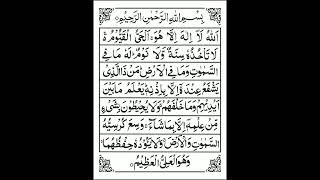 بِسْمِ اللهِ الرَّحْمٰنِ الرَّحِيْمِ
اَللهُ لَآ اِلٰهَ اِلَّا هُوَ ۚ اَلْحَيُّ الْقَيُّوْمُ ۚ
لَا تَاْخُذُهٗ سِنَةٌ وَّلَا نَوْمٌ ؕ لَهٗ مَا فِي
السَّمٰوٰتِ وَمَا فِي الْاَرْضِ ؕ مَنْ ذَا الَّذِيْ
يَشْفَعُ عِنْدَهٗۤ اِلَّا بِاِذْنِهٖ ؕ يَعْلَمُ مَا بَيْنَ
اَيْدِيْهِمْ وَمَا خَلْفَهُمْ ۚ وَلَا يُحِيْطُوْنَ بِشَيْءٍ
مِّنْ عِلْمِهٖۤ اِلَّا بِمَا شَآءَ ۚ وَسِعَ كُرْسِيُّهُ
السَّمٰوٰتِ وَالْاَرْضَ ۚ وَلَا يَـُٔوْدُهٗ حِفْظُهُمَا ۚ
وَهُوَ الْعَلِيُّ الْعَظِيْمُ